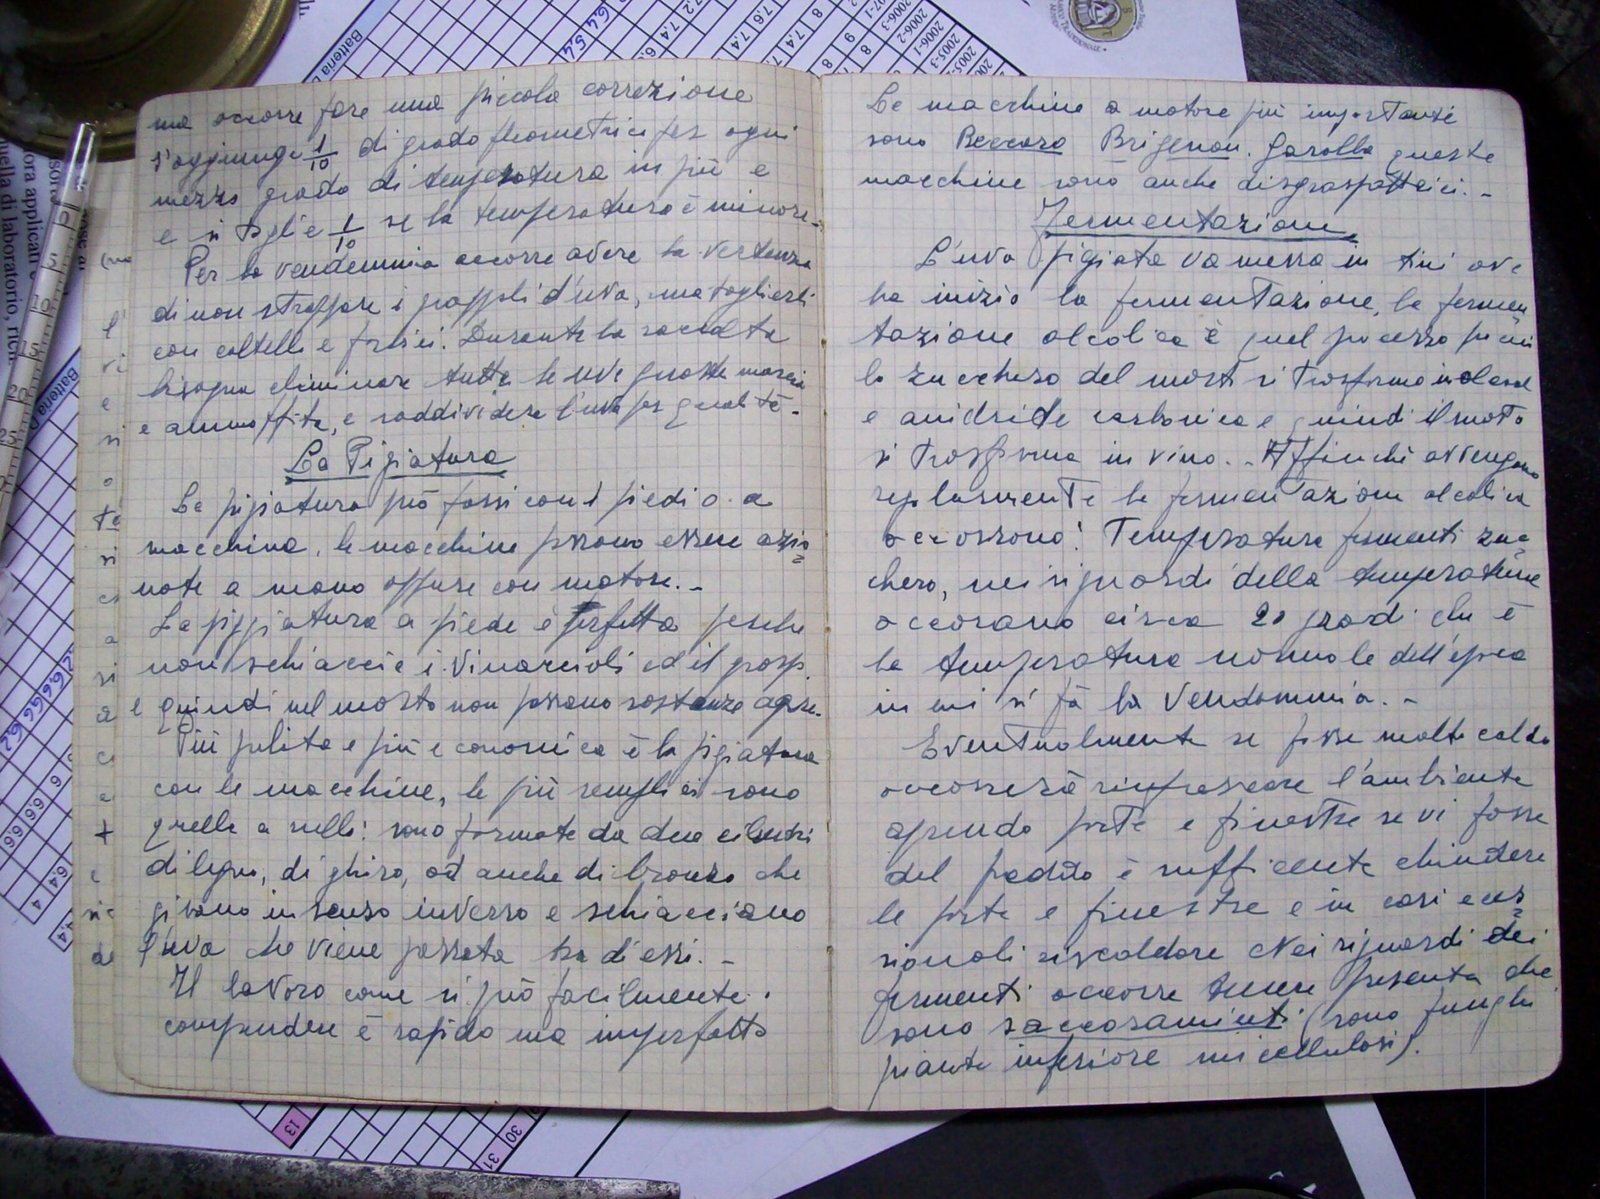 ma occorre fare una piccola correzione
s'aggiunge 1/10 di grado gleometrico per ogni
mezzo grado di temperatura in più e
e si toglie 1/10 se la temperatura è minore.-
Per la vendemmia occorre avere la vertenza
di non strappare i grappoli d'uva, ma toglierli
con coltelli e forbici. Durante la racolta
bisogna eliminare tutte le uve guaste marcie
e ammuffite, e soddividere l'uva per qualità.-
La Pigiatura
La pigiatura può farsi con i piedi o a
macchina, le macchine possono essere azio=
nate a mano oppure con motore.-
La piggiatura a piede è perfetta perche
non schiaccia i vinaccioli ed il rasp.
e quindi nel mosto non passano sostanze agre.
Più pulita e più economica è la pigiatura
con le macchine, le più semplici sono
quelle a rulli: sono formate da due cilindri
di legno, di ghisa, od anche di bronzo che
girano in senso inverso e schiacciano
l'uva che viene passata tra di essi.-
Il lavoro come si può facilmente
comprendere è rapido ma imperfetto
Le macchine a motore più importanti
sono Beccaro Brigenon. Garolla queste
macchine sono anche disgraspattrici.-
Fermentazione
L'uva pigiata va messa in tini ove
ha inizio la fermentazione, la fermen
tazione alcolica è quel processo per cui
lo zucchero del mosti si trasforma in alcool
e anidride carbonica e quindi il mosto
si trasforma in vino.- Affinchè avvengano
regolarmente le fermentazioni alcolica
occorrono: Temperatura fermenti zuc=
chero, nei riguardi della temperatura
occorano circa 20 gradi che è
la temperatura normale dell'epoca
in cui si fà la vendemmia.-
Eventualmente se fosse molto caldo
occorrerà rinfrescare l'ambiente
aprendo porte e finestre se vi fosse
del freddo è sufficente chiudere
le porte e finestre e in casi ecces=
sionali riscaldare Nei riguardi dei
fermenti occorre tenere presente che
sono saccaramiceti (sono funghi
piante inferiore unicellulosi).